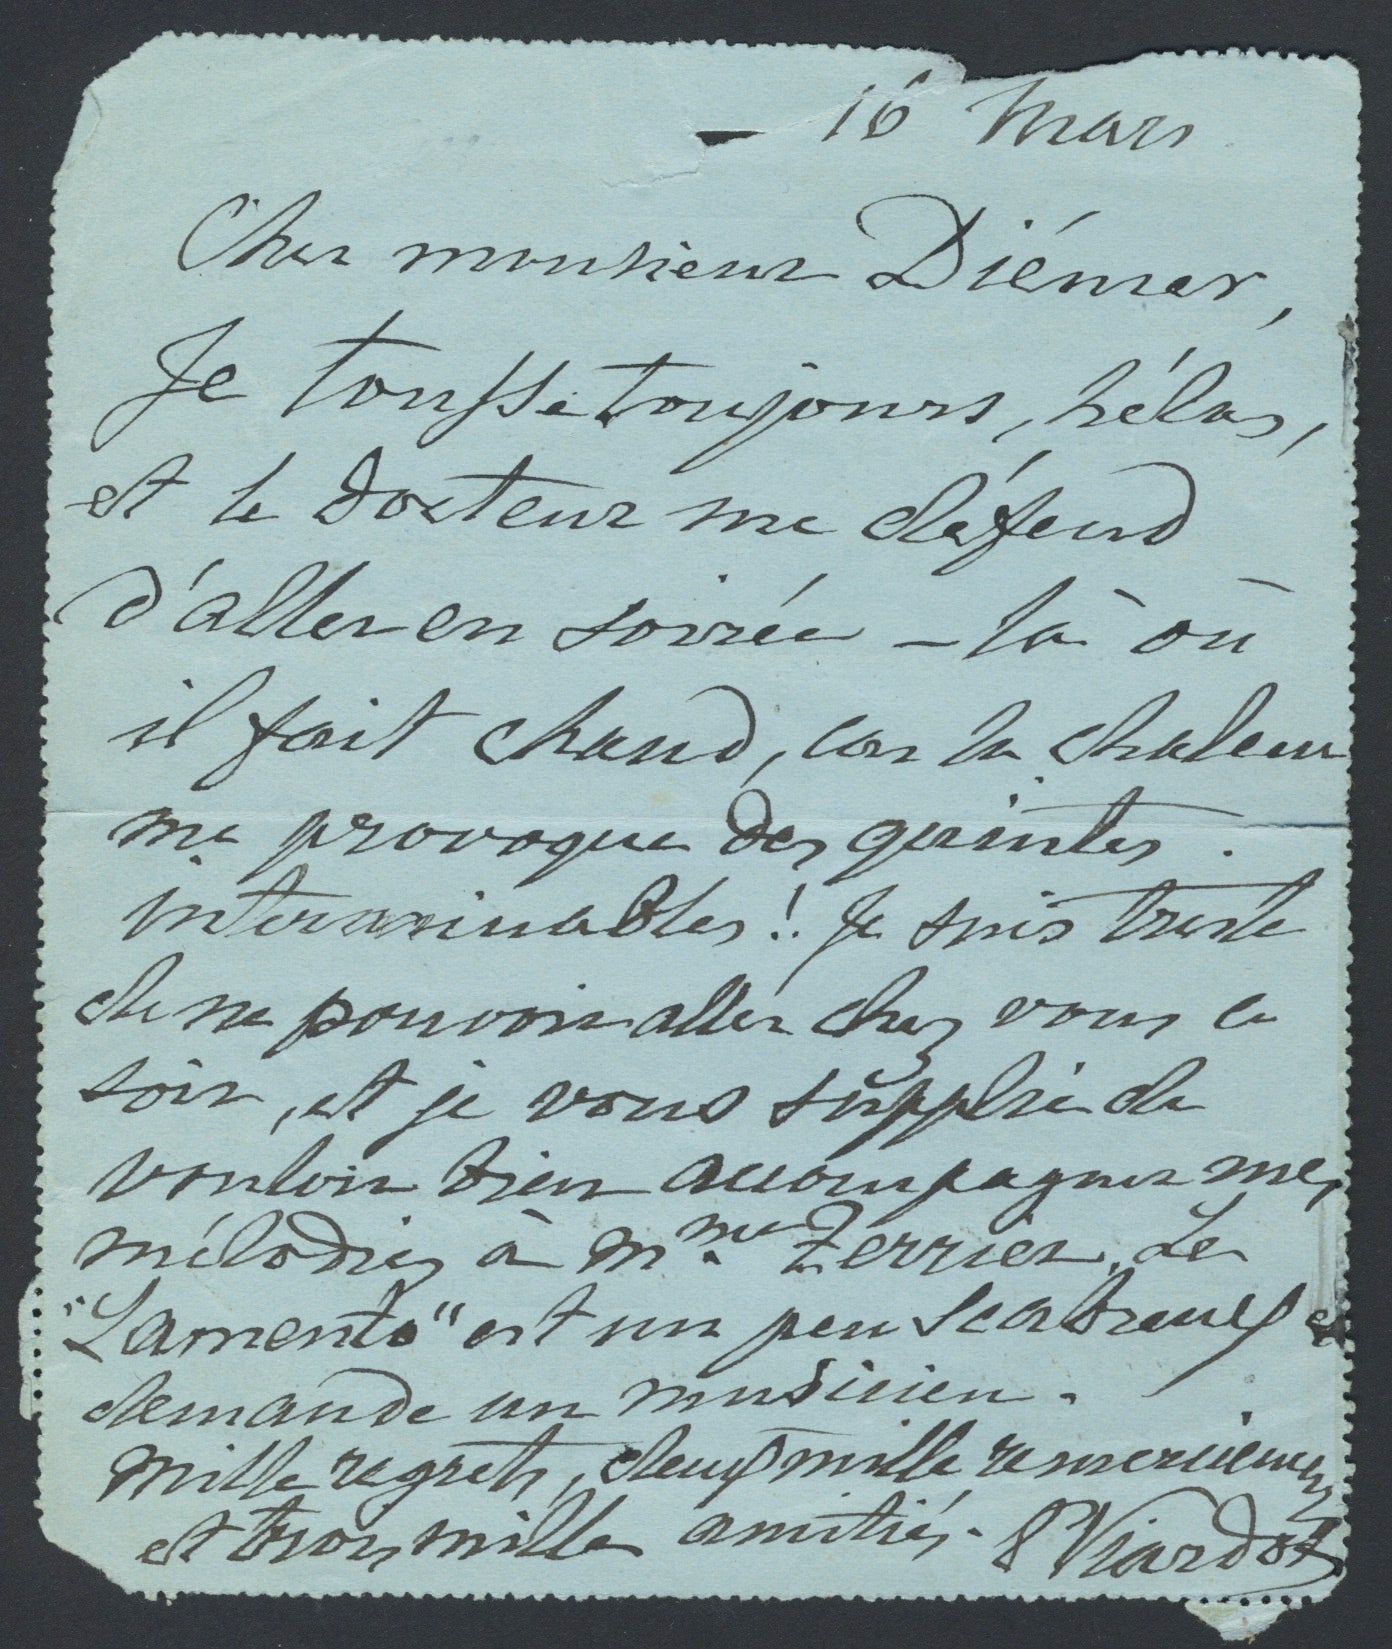 16 Mars
Cher monsieur Diémer,
Je tousse toujours, hélas,
et le docteur me défend
d'aller en soirée – là où
il fait chaud, car la chaleur
me provoque des quintes
interminables! Je suis triste
de ne pouvoir aller chez vous ce
soir, et je vous supplie de
vouloir bien accompagner mes
mélodies à Mme Terrier. Le
"Lamento" est un peu scabreux et
demande un musicien.
Mille regrets, deux mille remerciements
et trois mille amitiés. P Viardot